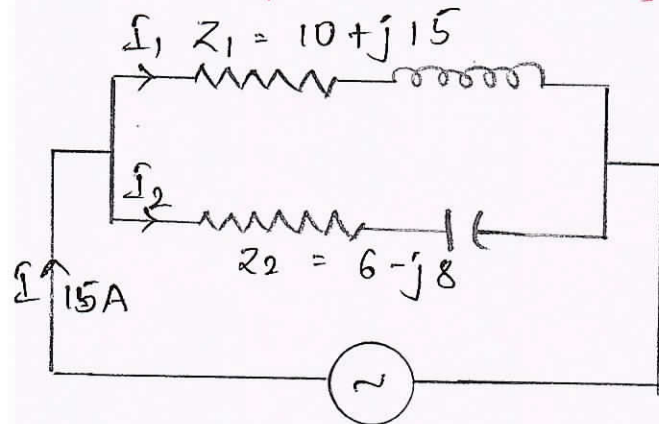 I₁ Z₁ = 10 + j 15
I₂
Z₂ = 6 - j 8
I 15A
~